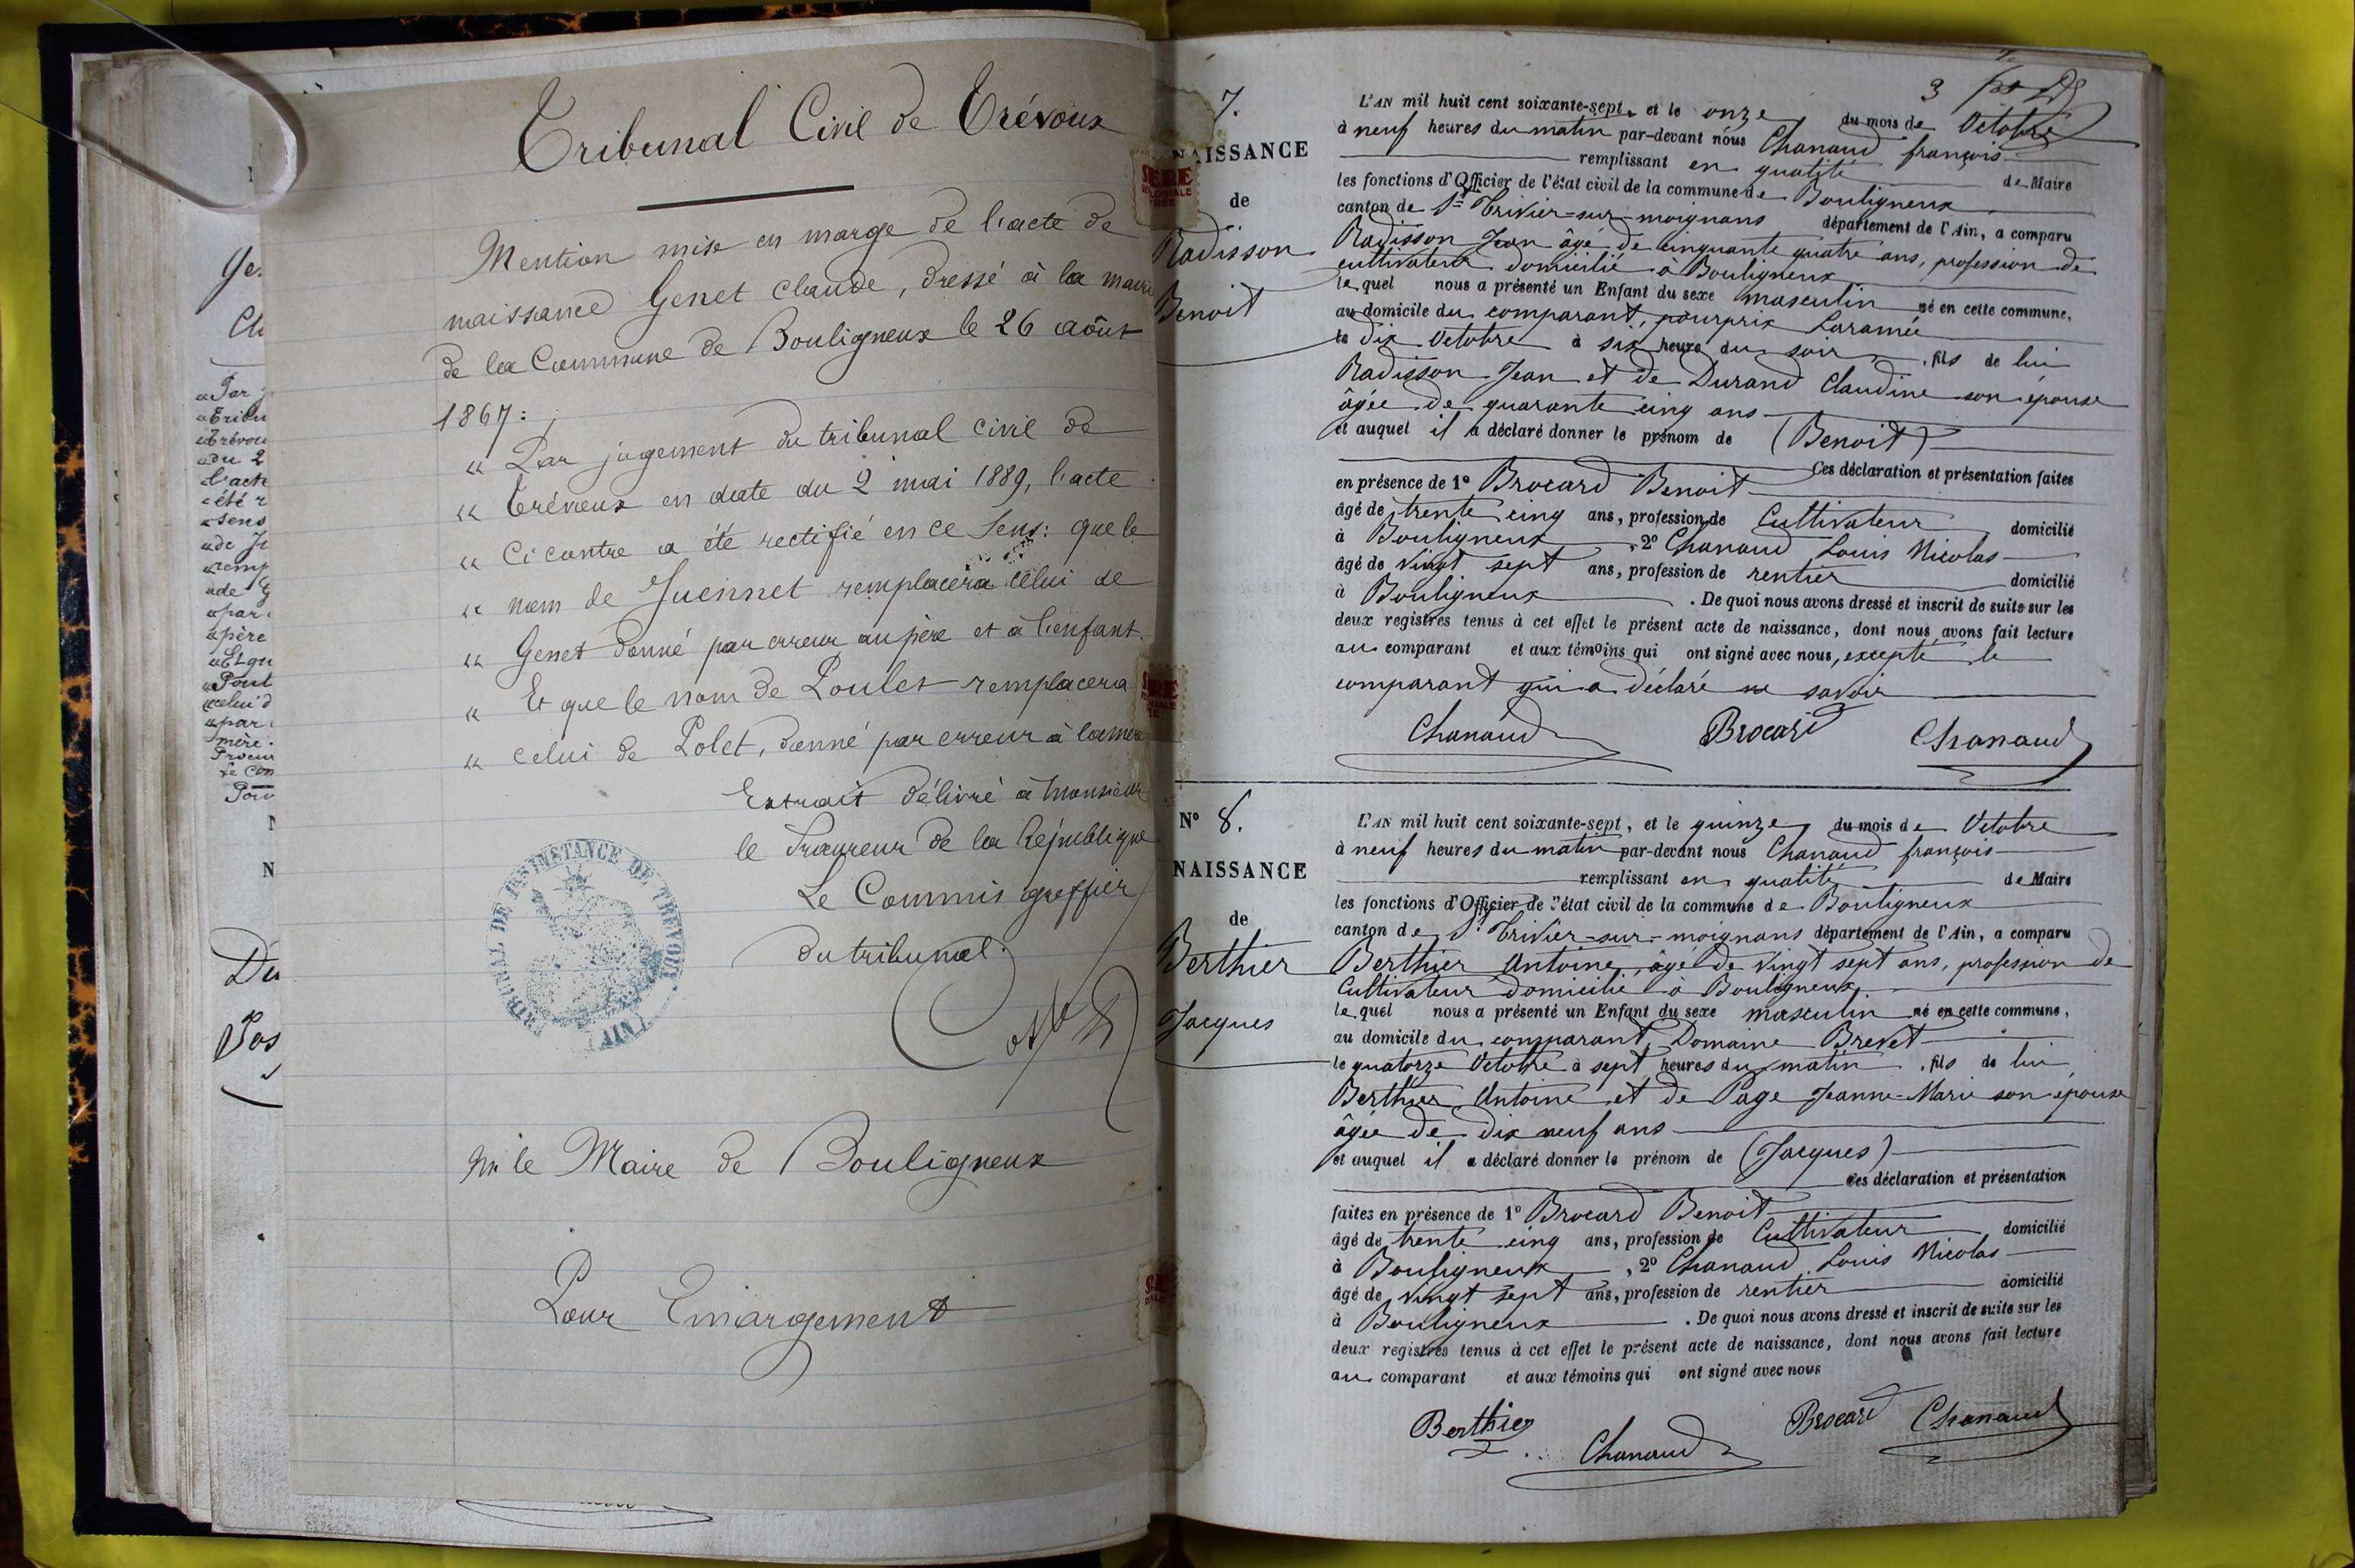 Tribunal Civil de Trévoux
Mention mise en marge de l'acte de
naissance Genet Claude, dressé à la mairie
de la Commune de Bouligneux le 26 août
1867 :
" Par jugement du tribunal civil de
" Trévoux en date du 2 mai 1889, l'acte
" Ci contre a été rectifié en ce sens: que le
" nom de Juennet remplacera celui de
" Genet donné par erreur au père et à l'enfant.
" Et que le nom de Poulet remplacera
" celui de Polet, donné par erreur à la mère
Extrait délivré à Monsieur
le Procureur de la République
Le Commis greffier
du tribunal.
TRIBUNAL DE 1RE INSTANCE DE TREVOUX (AIN)
le Maire de Bouligneux
Pour Emargement
3
7.
NAISSANCE
de
Radisson
Benoit
L'AN mil huit cent soixante-sept, et le onze du mois de Octobre
à neuf heures du matin par-devant nous Chanaud françois
remplissant en qualité de Maire
les fonctions d'Officier de l'état civil de la commune de Bouligneux
canton de St Trivier-sur-moignans département de l'Ain, a comparu
Radisson Jean âgé de cinquante quatre ans, profession de
cultivateur domicilié à Bouligneux
lequel nous a présenté un Enfant du sexe masculin né en cette commune,
au domicile du comparant, pourprix Laramée
le dix Octobre à six heure du soir, fils de lui
Radisson Jean et de Durand Claudine son épouse
âgée de quarante cinq ans
et auquel il a déclaré donner le prénom de (Benoit)
Ces déclaration et présentation faites
en présence de 1° Brocard Benoit
âgé de trente cinq ans, profession de Cultivateur domicilié
à Bouligneux, 2° Chanaud Louis Nicolas
âgé de vingt sept ans, profession de rentier domicilié
à Bouligneux. De quoi nous avons dressé et inscrit de suite sur les
deux registres tenus à cet effet le présent acte de naissance, dont nous avons fait lecture
au comparant et aux témoins qui ont signé avec nous, excepté le
comparant qui a déclaré ne savoir
Chanaud Brocard Chanaud
N° 8.
NAISSANCE
de
Berthier
Jacques
L'AN mil huit cent soixante-sept, et le quinze du mois de Octobre
à neuf heures du matin par-devant nous Chanaud françois
remplissant en qualité de Maire
les fonctions d'Officier de l'état civil de la commune de Bouligneux
canton de St Trivier-sur-moignans département de l'Ain, a comparu
Berthier Antoine, âgé de vingt sept ans, profession de
Cultivateur domicilié à Bouligneux
lequel nous a présenté un Enfant du sexe masculin né en cette commune,
au domicile du comparant, Domaine Brevet
le quatorze Octobre à sept heures du matin, fils de lui
Berthier Antoine et de Page Jeanne-Marie son épouse
âgée de dix neuf ans
et auquel il a déclaré donner le prénom de (Jacques)
Ces déclaration et présentation
faites en présence de 1° Brocard Benoit
âgé de trente cinq ans, profession de Cultivateur domicilié
à Bouligneux, 2° Chanaud Louis Nicolas
âgé de vingt sept ans, profession de rentier domicilié
à Bouligneux. De quoi nous avons dressé et inscrit de suite sur les
deux registres tenus à cet effet le présent acte de naissance, dont nous avons fait lecture
au comparant et aux témoins qui ont signé avec nous
Berthier Chanaud Brocard Chanaud